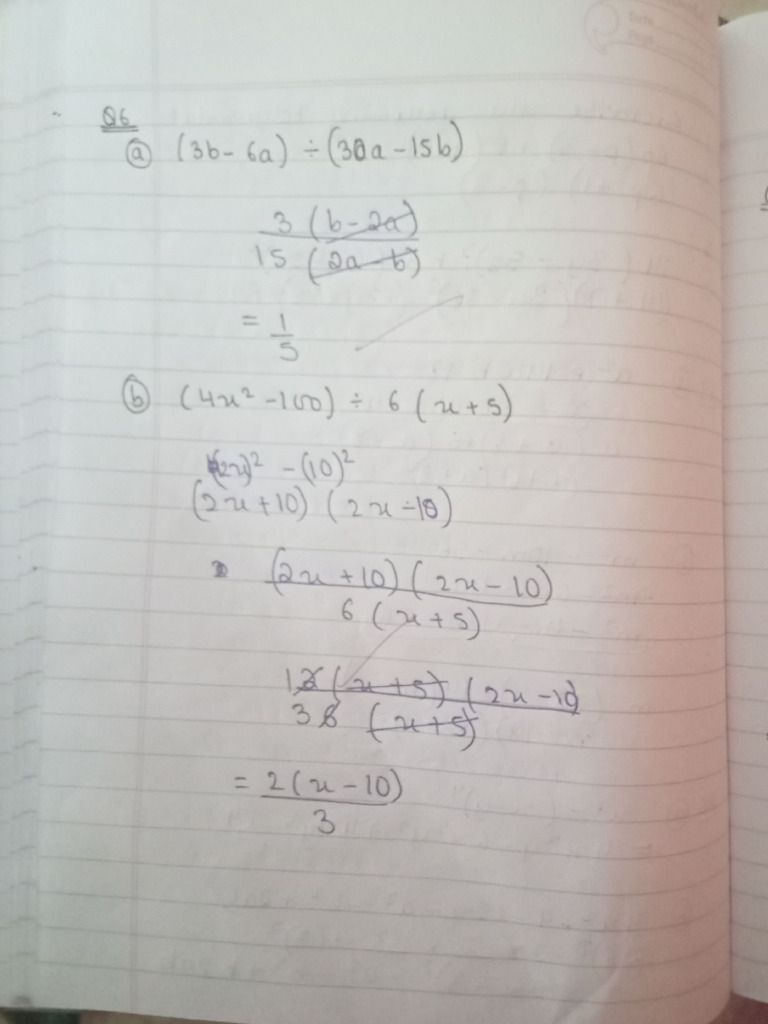 Q6
ⓐ (3b - 6a) ÷ (30a - 15b)
3 (b - 2a)
15 (2a - b)
= 1
5
ⓑ (4x² - 100) ÷ 6 (x + 5)
(2x)² - (10)²
(2x + 10) (2x - 10)
(2x + 10) (2x - 10)
6 (x + 5)
1 2 (x + 5) (2x - 10
3 6 (x + 5)
= 2(x - 10)
3